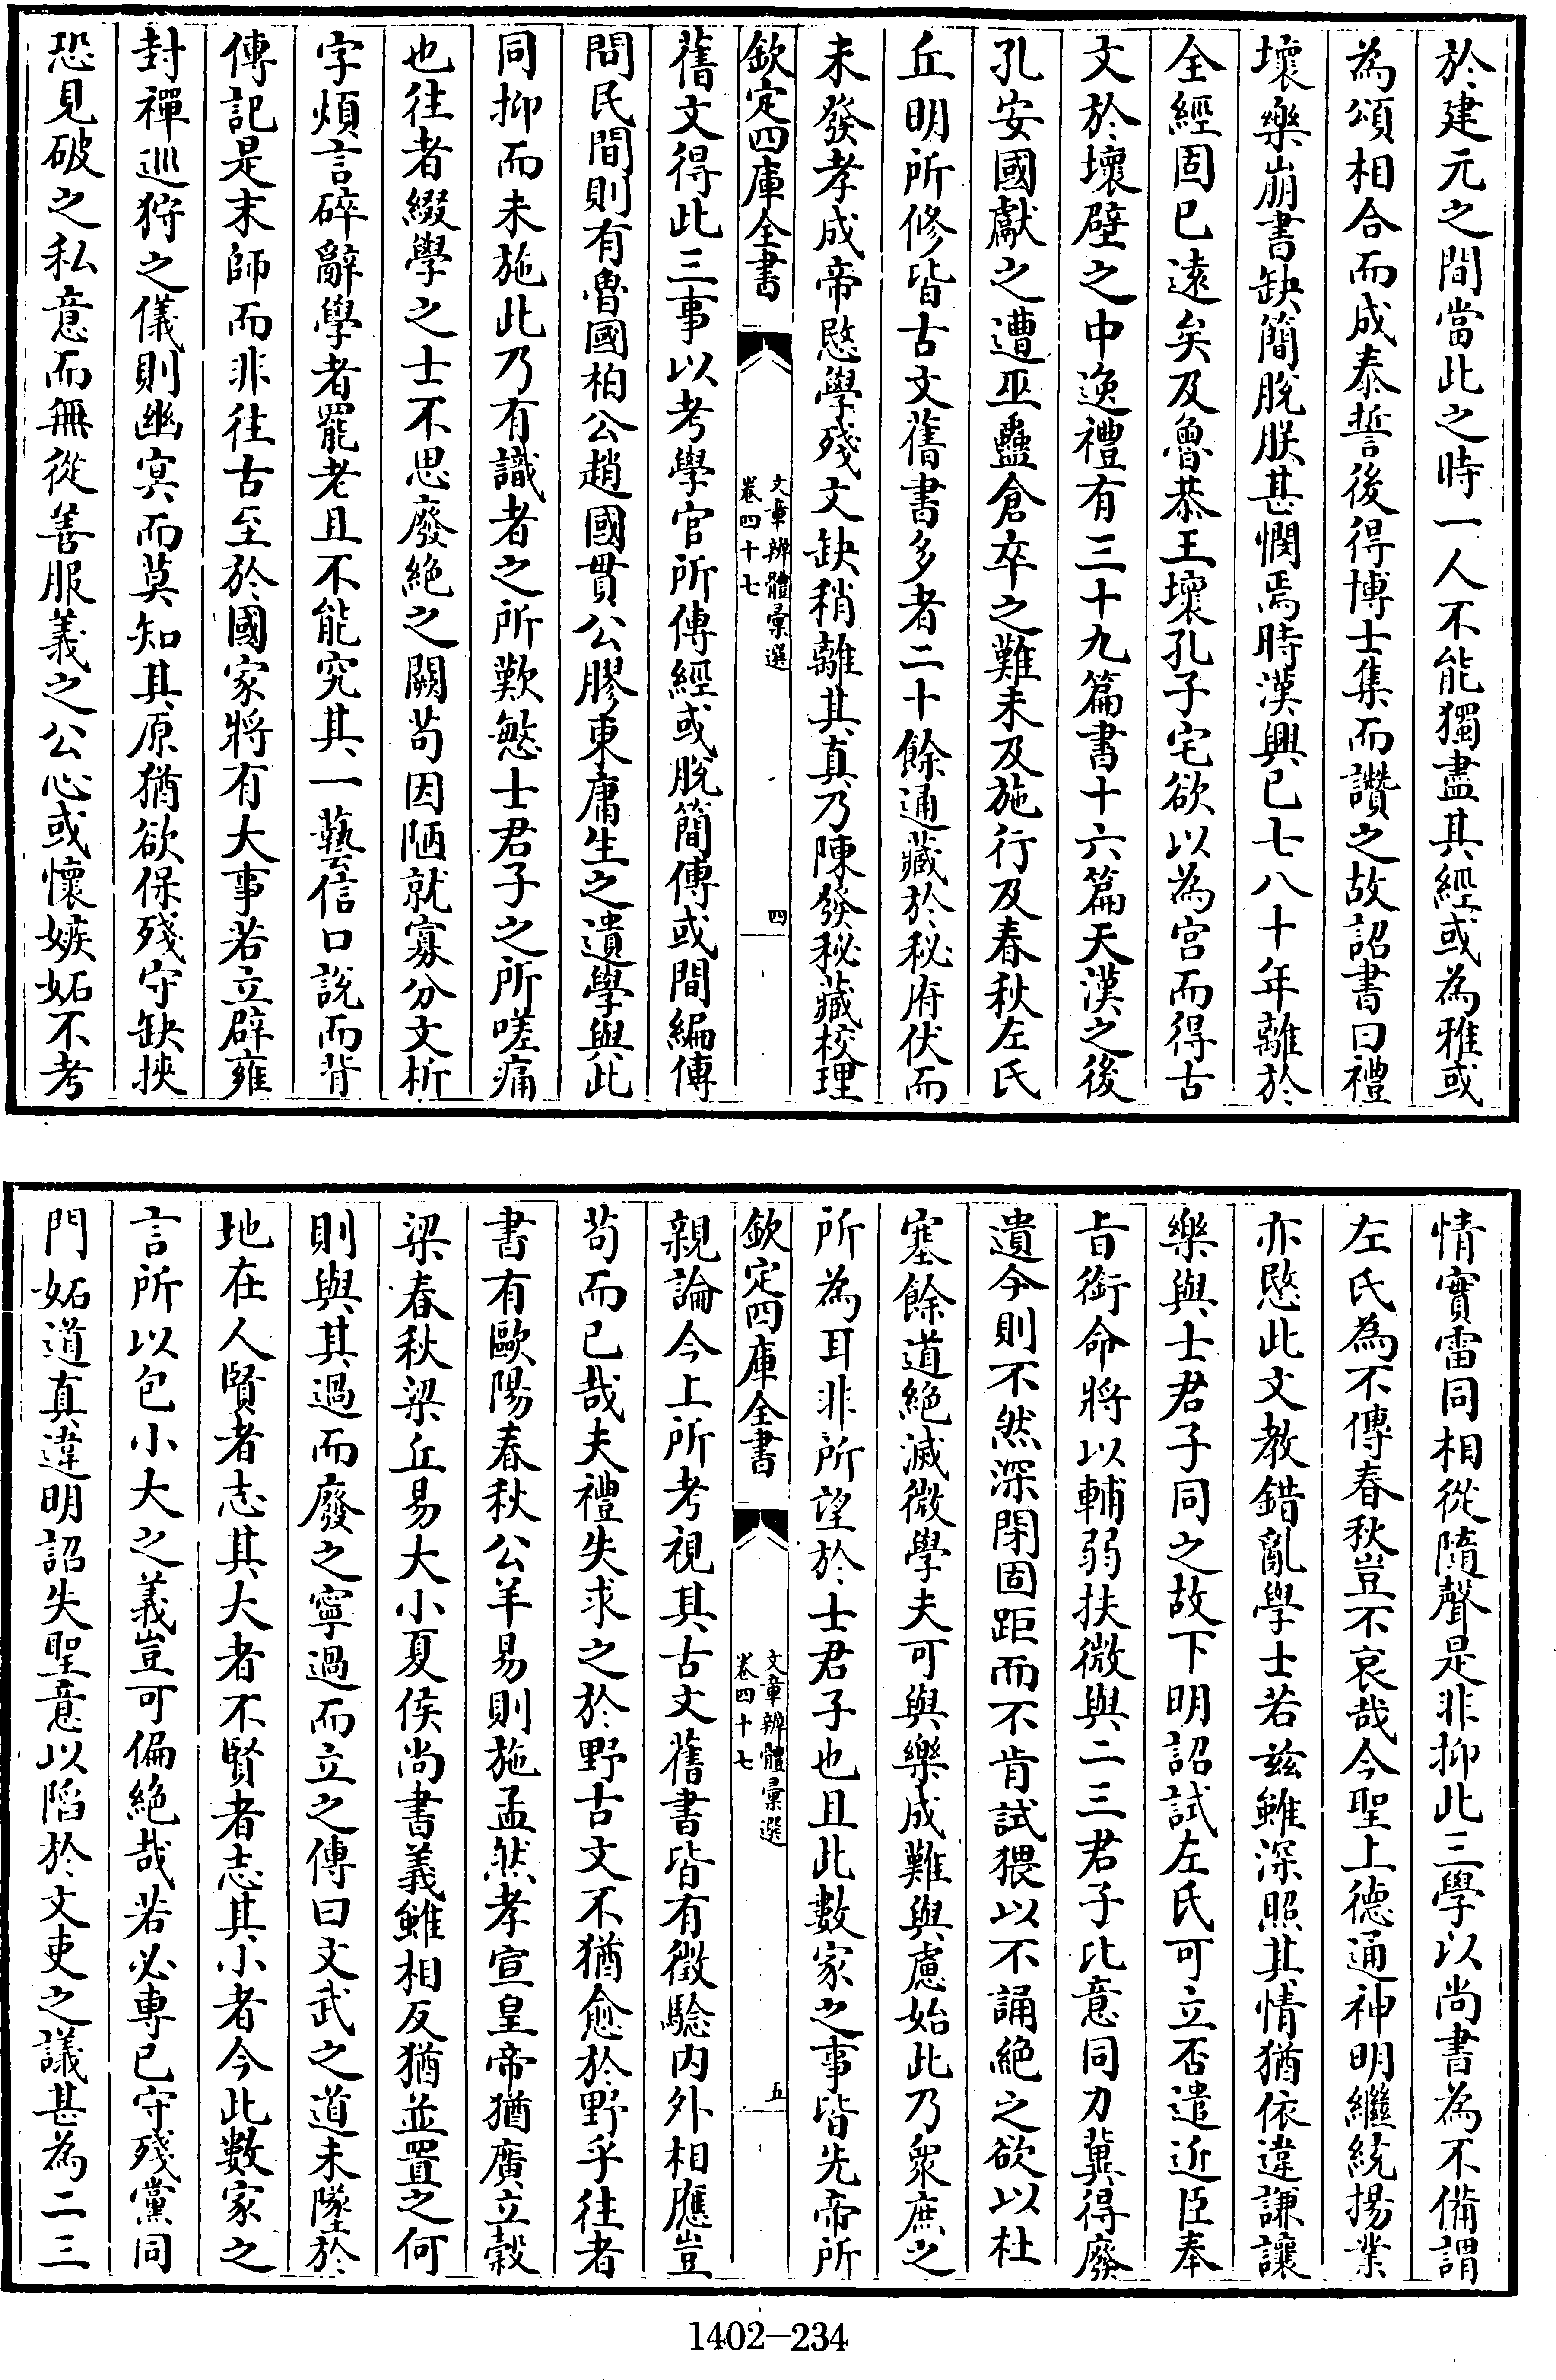 於建元之間當此之時一人不能獨盡其經或為雅或
為頌相合而成泰誓後得博士集而讚之故詔書曰禮
壞樂崩書缺簡脫朕甚憫焉時漢興已七八十年離於
全經固已遠矣及魯恭王壞孔子宅欲以為宮而得古
文於壞壁之中逸禮有三十九篇書十六篇天漢之後
孔安國獻之遭巫蠱倉卒之難未及施行及春秋左氏
丘明所修皆古文舊書多者二十餘通藏於秘府伏而
未發孝成帝愍學殘文缺稍離其真乃陳發秘藏校理
欽定四庫全書
文章辨體彙選
卷四十七
四
舊文得此三事以考學官所傳經或脫簡傳或間編傳
問民間則有魯國柏公趙國貫公膠東庸生之遺學與此
同抑而未施此乃有識者之所歎慜士君子之所嗟痛
也往者綴學之士不思廢絕之闕苟因陋就寡分文析
字煩言碎辭學者罷老且不能究其一藝信口說而背
傳記是末師而非往古至於國家將有大事若立辟雍
封禪巡狩之儀則幽冥而莫知其原猶欲保殘守缺挾
恐見破之私意而無從善服義之公心或懷嫉妬不考
情實雷同相從隨聲是非抑此三學以尚書為不備謂
左氏為不傳春秋豈不哀哉今聖上德通神明繼統揚業
亦愍此文教錯亂學士若茲雖深照其情猶依違謙讓
樂與士君子同之故下明詔試左氏可立否遣近臣奉
旨銜命將以輔弱扶微與二三君子比意同力冀得廢
遺今則不然深閉固距而不肯試猥以不誦絕之欲以杜
塞餘道絕滅微學夫可與樂成難與慮始此乃衆庶之
所為耳非所望於士君子也且此數家之事皆先帝所
欽定四庫全書
文章辨體彙選
卷四十七
五
親論今上所考視其古文舊書皆有徵驗內外相應豈
苟而已哉夫禮失求之於野古文不猶愈於野乎往者
書有歐陽春秋公羊易則施孟然孝宣皇帝猶廣立穀
梁春秋梁丘易大小夏侯尚書義雖相反猶並置之何
則與其過而廢之寧過而立之傳曰文武之道未墜於
地在人賢者志其大者不賢者志其小者今此數家之
言所以包小大之義豈可偏絕哉若必專已守殘黨同
門妬道真違明詔失聖意以陷於文吏之議甚為二三
1402-234